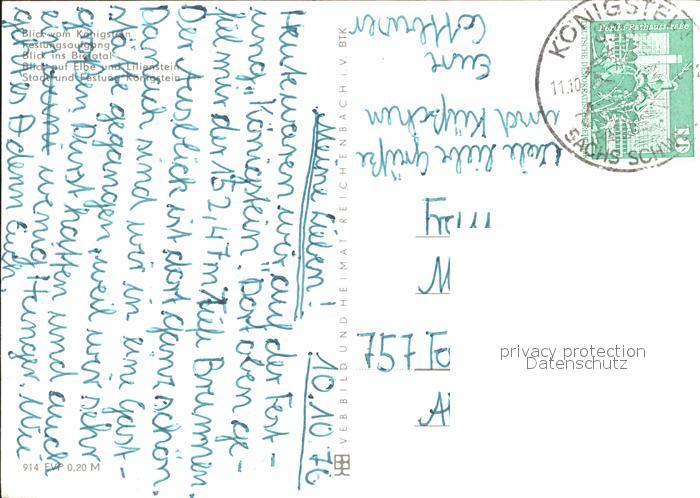 Blick vom Königstein
Festungsaufgang
Blick ins Bielatal
Blick auf Elbe und Lilienstein
Stadt und Festung Königstein
Meine Lieben! 10.10.76
Heute waren wir auf der Fest-
ung Königstein. Dort oben ge-
fiel mir der 152,47m tiefe Brunnen.
Der Ausblick ist dort ganz schön.
Danach sind wir in eine Gast-
stätte gegangen weil wir sehr
großen Durst hatten und auch
ein wenig Hunger. Wie
geht es denn euch.
Viele liebe Grüße
und Küßchen
Eure
VEB BILD UND HEIMAT REICHENBACH i. V. BTK
914 EVP 0,20 M
KÖNIGSTEIN
11.10
SÄCHS SCHW
Berlin, Rathausstraße
10
Fam
M
757
A
privacy protection
Datenschutz